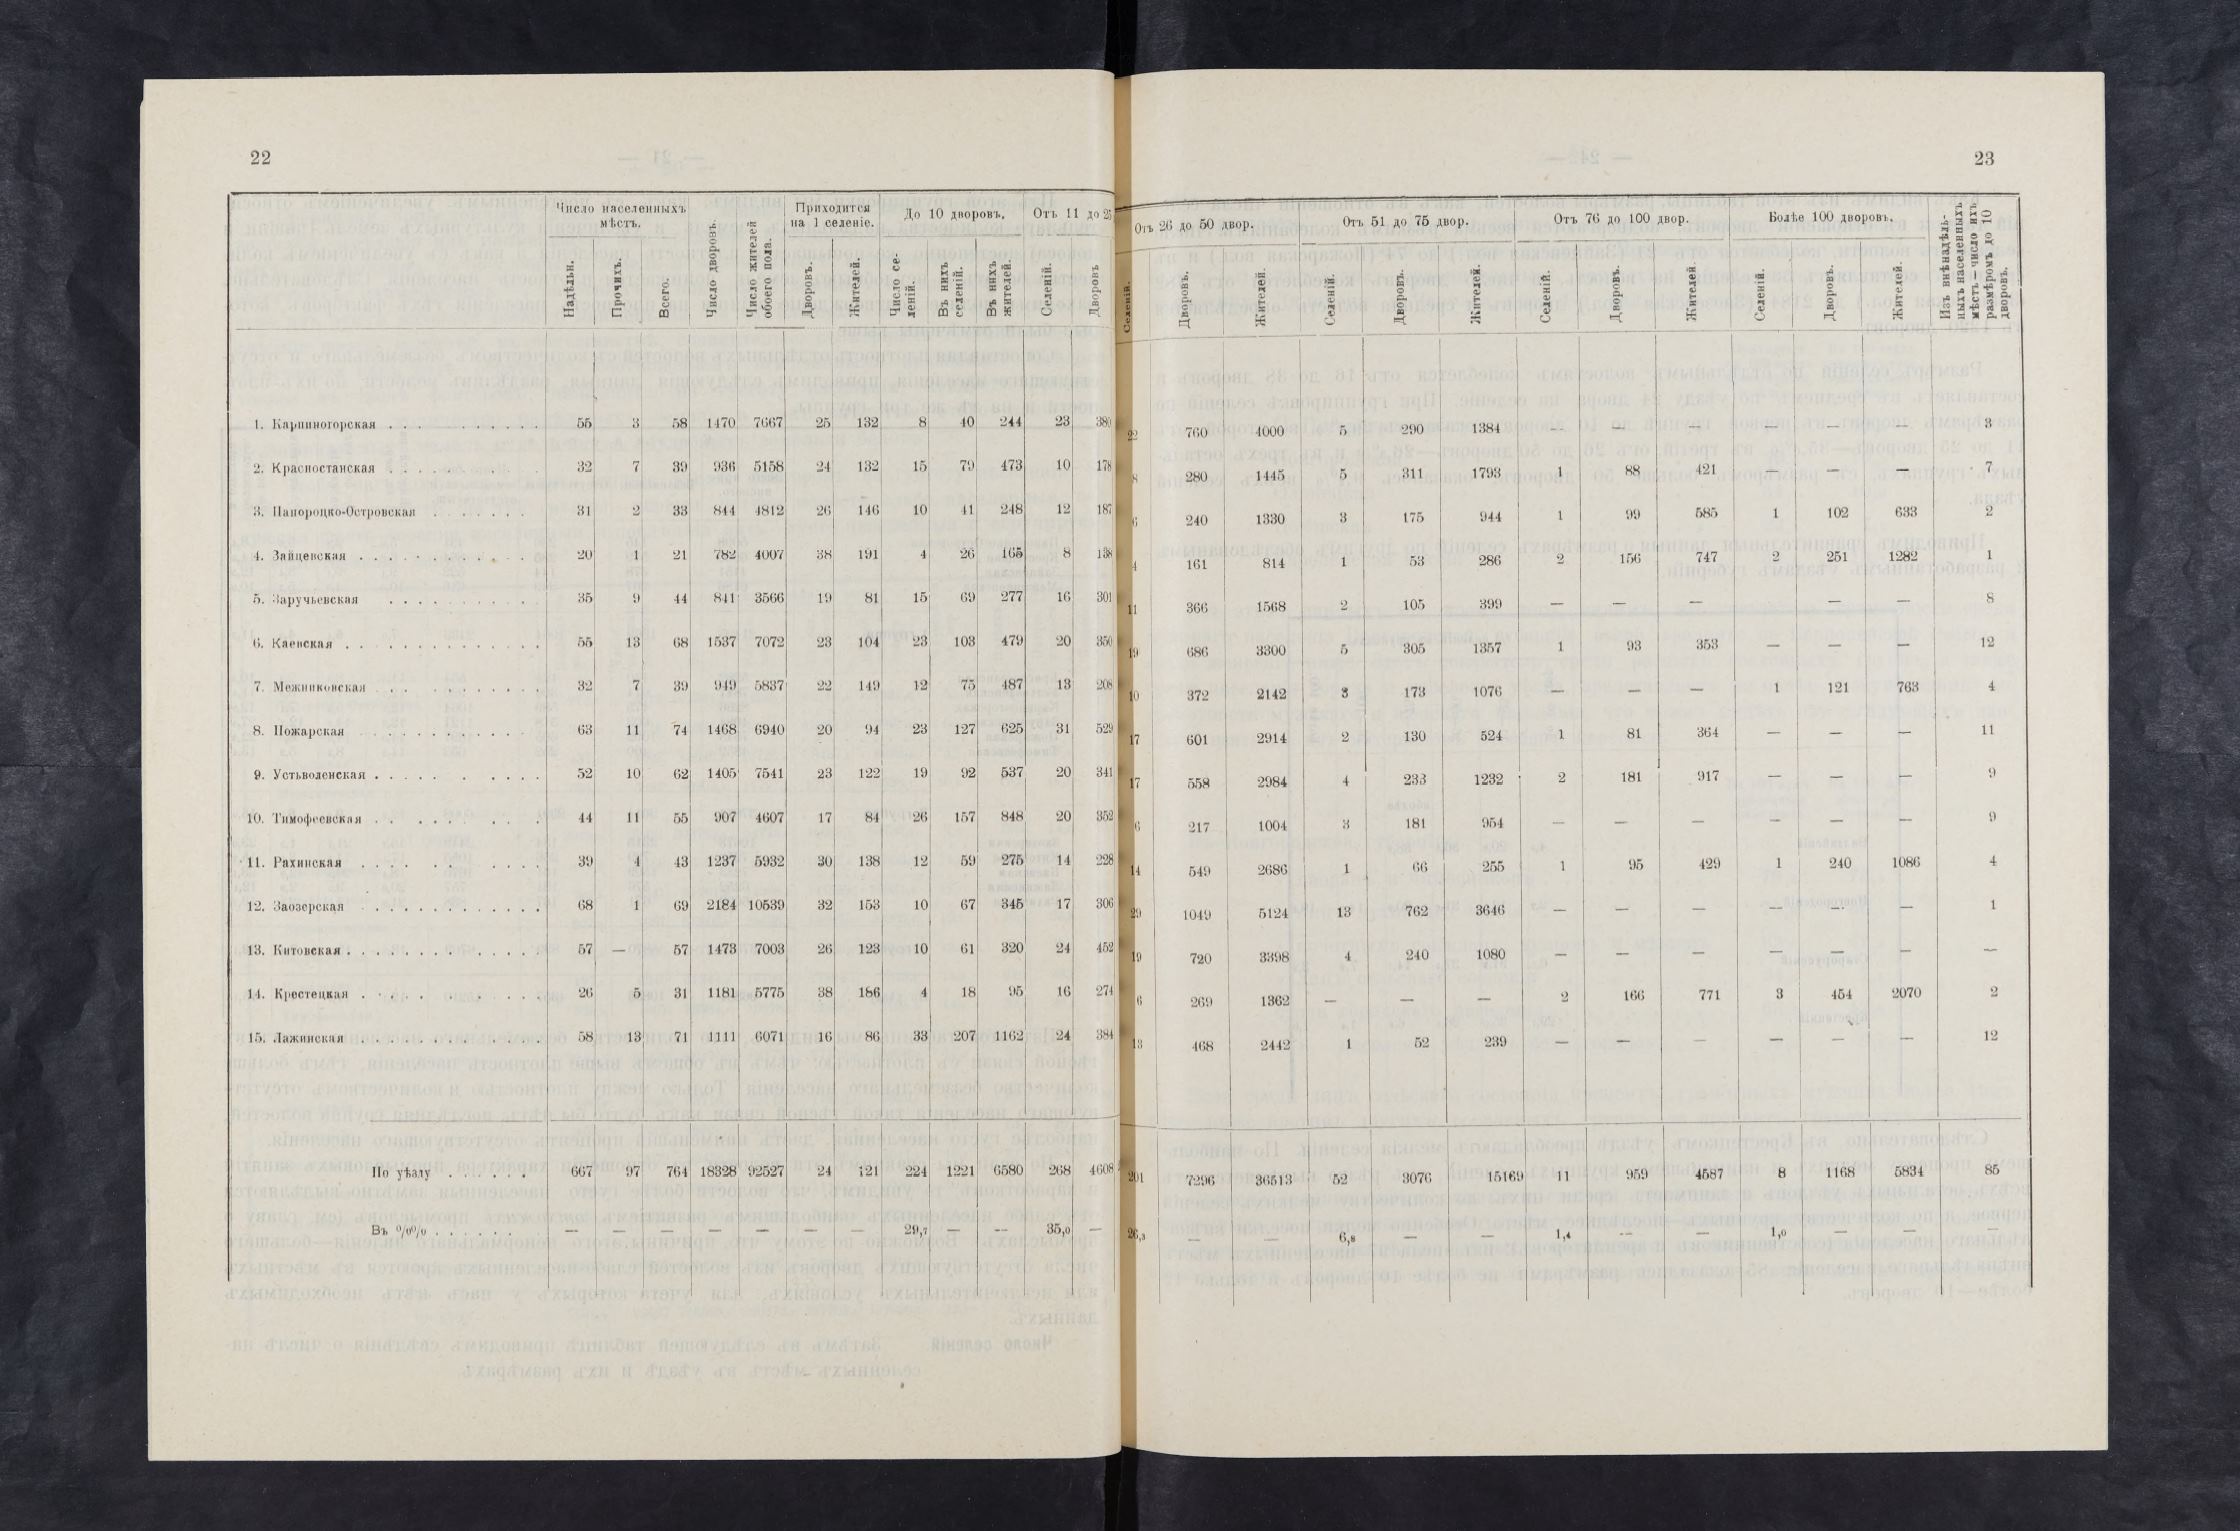 22
Число населенныхъ мѣстъ. Число дворовъ. Число жителей обоего пола. Приходится на 1 селеніе. До 10 дворовъ. Отъ 11 до 25
Надѣльн. Прочихъ. Всего. Дворовъ. Жителей. Число се-леній. Въ нихъ селеній. Въ нихъ жителей. Селеній. Дворовъ
1. Карпиногорская . . . 55 3 58 1470 7667 25 132 8 40 244 23 380
2. Красностанская . . . 32 7 39 936 5158 24 132 15 79 473 10 178
3. Папороцко-Островская . . . 31 2 33 844 4812 26 146 10 41 248 12 187
4. Зайцевская . . . 20 1 21 782 4007 38 191 4 26 165 8 138
5. Заручьевская . . . 35 9 44 841 3566 19 81 15 69 277 16 301
6. Каевская . . . 55 13 68 1537 7072 23 104 23 103 479 20 350
7. Межниковская . . . 32 7 39 949 5837 22 149 12 75 487 13 208
8. Пожарская . . . 63 11 74 1468 6940 20 94 23 127 625 31 529
9. Устьволенская . . . 52 10 62 1405 7541 23 122 19 92 537 20 341
10. Тимофеевская . . . 44 11 55 907 4607 17 84 26 157 848 20 352
11. Рахинская . . . 39 4 43 1237 5932 30 138 12 59 275 14 228
12. Заозерская . . . 68 1 69 2184 10539 32 153 10 67 345 17 306
13. Китовская . . . 57 — 57 1473 7003 26 123 10 61 320 24 452
14. Крестецкая . . . 26 5 31 1181 5775 38 186 4 18 95 16 274
15. Лажинская . . . 58 13 71 1111 6071 16 86 33 207 1162 24 384
По уѣзду . . . 667 97 764 18328 92527 24 121 224 1221 6580 268 4608
Въ %% . . . — — — — — — — 29,7 — — 35,0 —
23
Отъ 26 до 50 двор. Отъ 51 до 75 двор. Отъ 76 до 100 двор. Болѣе 100 дворовъ. Изъ внѣнадѣль-ныхъ населенныхъ мѣстъ — число ихъ размѣромъ до 10 дворовъ.
Селеній. Дворовъ. Жителей. Селеній. Дворовъ. Жителей. Селеній. Дворовъ. Жителей. Селеній. Дворовъ. Жителей.
22 760 4000 5 290 1384 — — — — — — 3
8 280 1445 5 311 1793 1 88 421 — — — 7
6 240 1330 3 175 944 1 99 585 1 102 633 2
4 161 814 1 53 286 2 156 747 2 251 1282 1
11 366 1568 2 105 399 — — — — — 8
19 686 3300 5 305 1357 1 93 353 — — — 12
10 372 2142 3 173 1076 — — — 1 121 763 4
17 601 2914 2 130 524 1 81 364 — — — 11
17 558 2984 4 233 1232 2 181 917 — — — 9
6 217 1004 3 181 954 — — — — — — 9
14 549 2686 1 66 255 1 95 429 1 240 1086 4
29 1049 5124 13 762 3646 — — — — — — 1
19 720 3398 4 240 1080 — — — — — — —
6 269 1362 — — — 2 166 771 3 454 2070 2
13 468 2442 1 52 239 — — — — — — 12
201 7296 36513 52 3076 15169 11 959 4587 8 1168 5834 85
26,3 — — 6,8 — — 1,4 — — 1,0 — — —